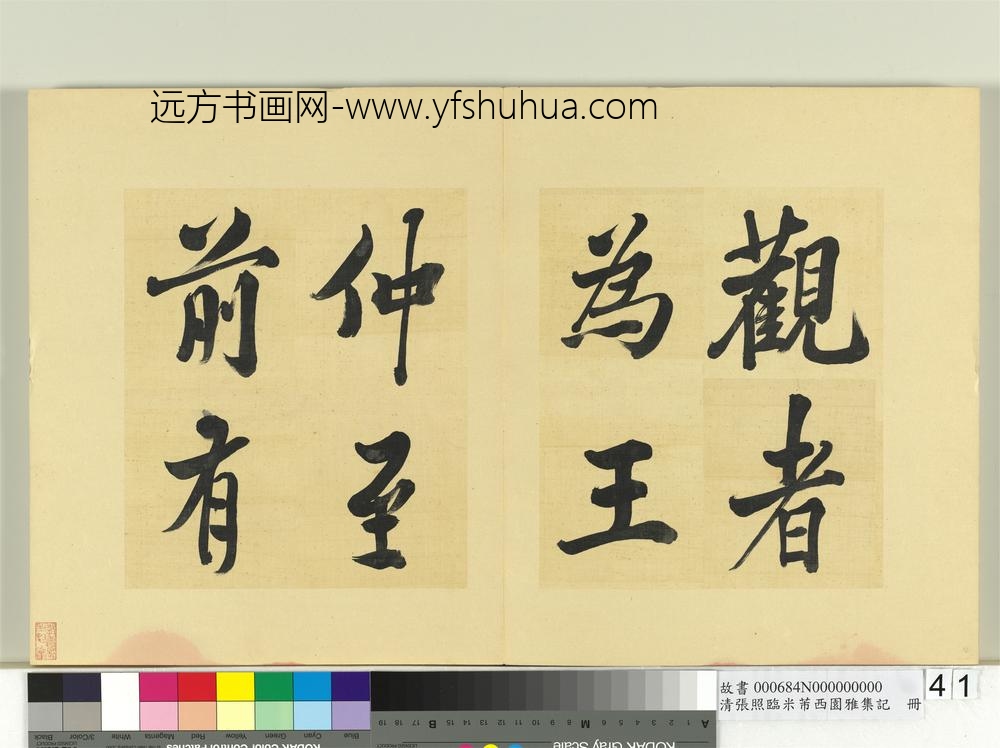 远方书画网-www.yfshuhua.com
觀者
為王
仲至
前有
故書 000684N000000000
清張照臨米芾西園雅集記 冊
41
Blue
Cyan
Green
Yellow
Red
Magenta
White
3/Color
Black
KODAK Color Control Patches
KODAK Gray Scale
A 1 2 3 4 5 6 M 8 9 10 11 12 13 14 15 B 17 18 19